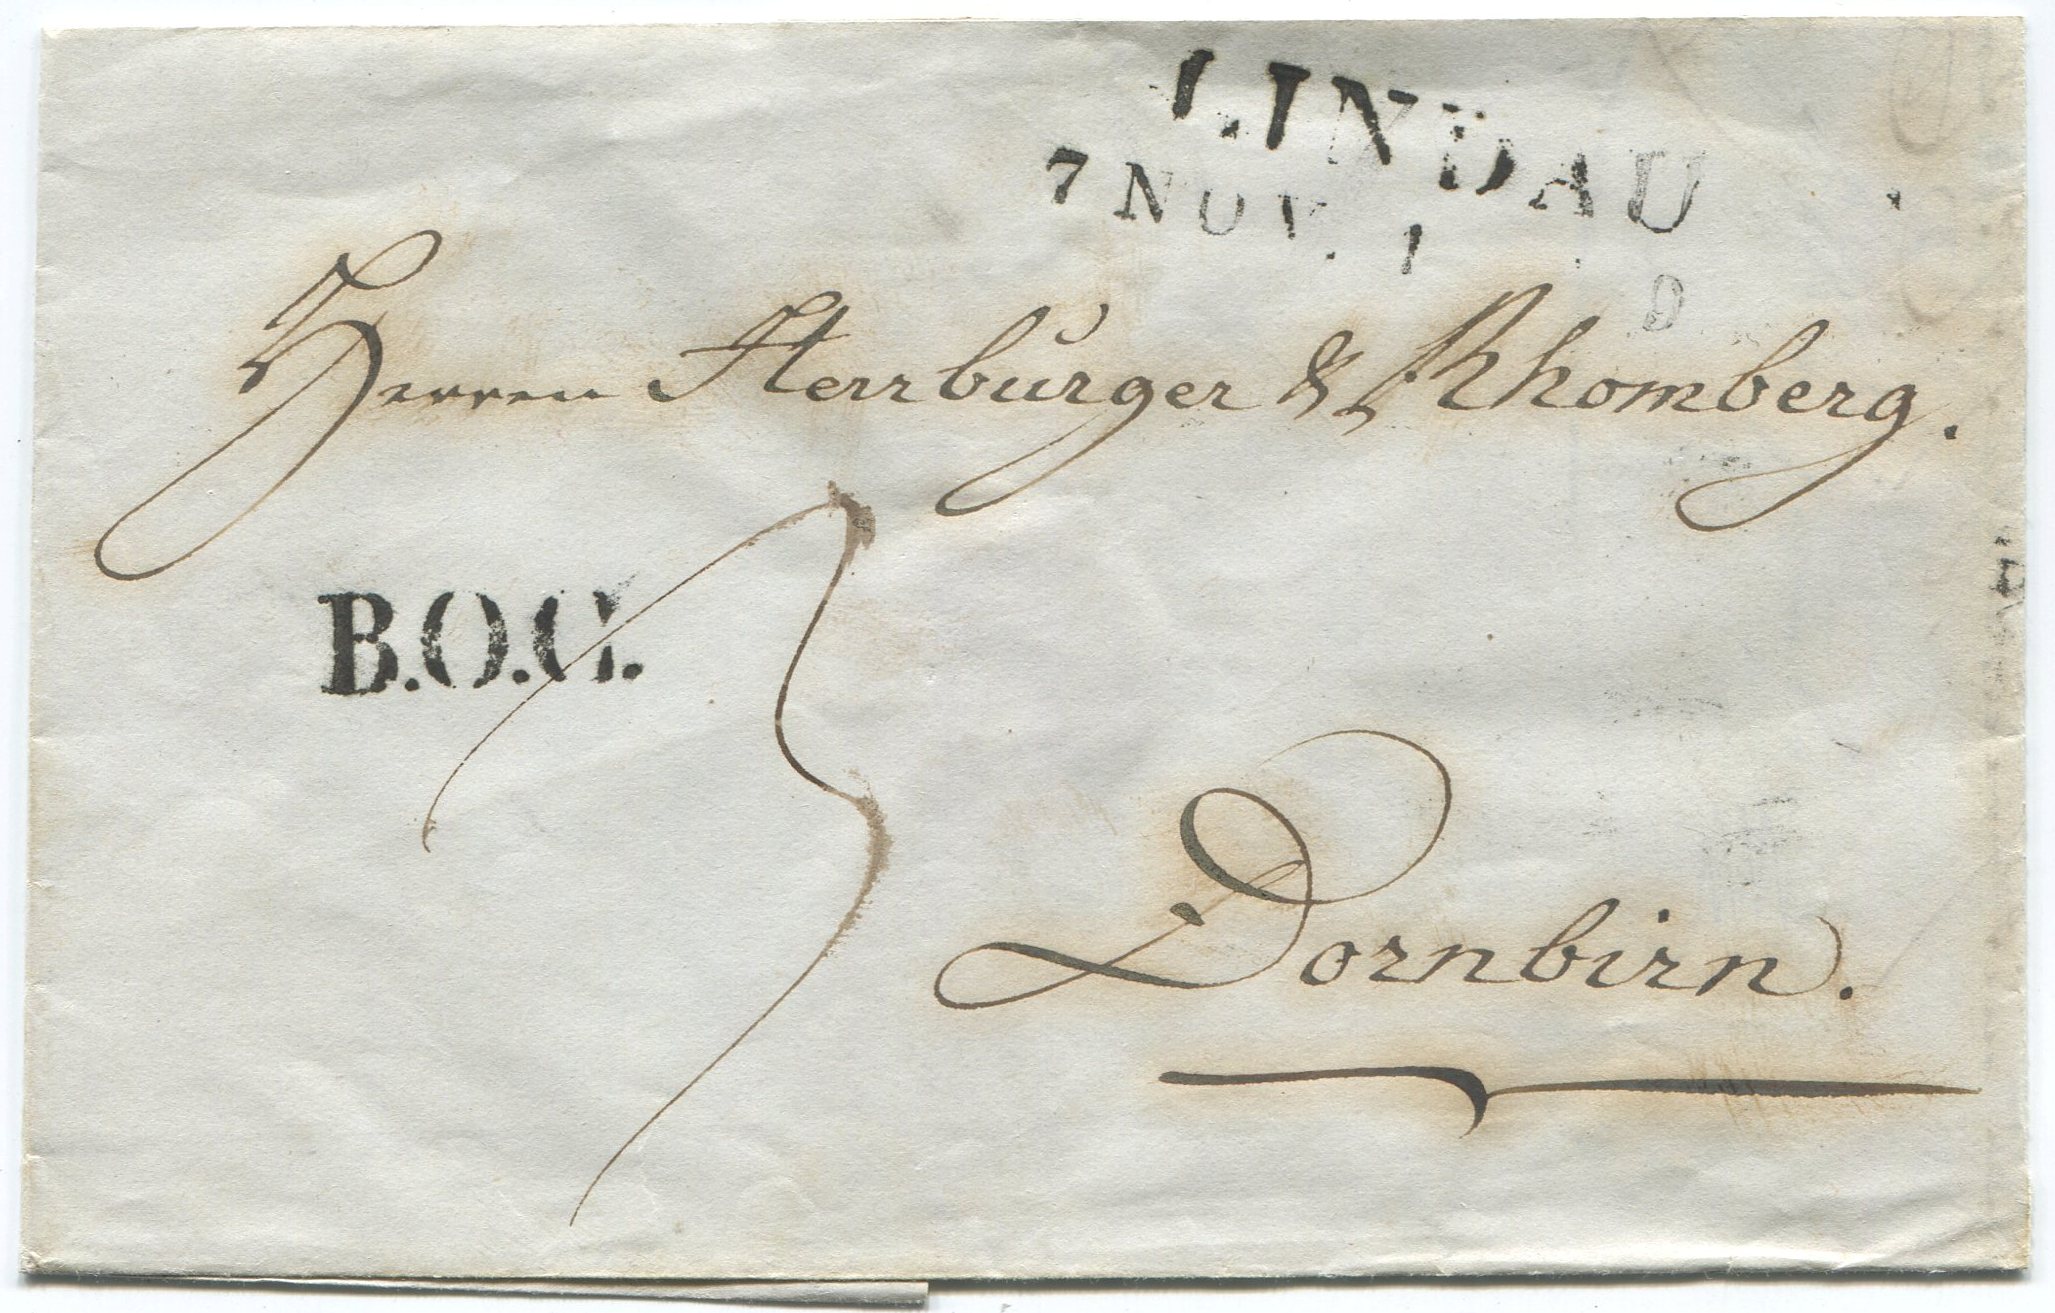 LINDAU
7 NOV. 1
Herren Herrburger & Rhomberg.
B.O.G.
3
Dornbirn.